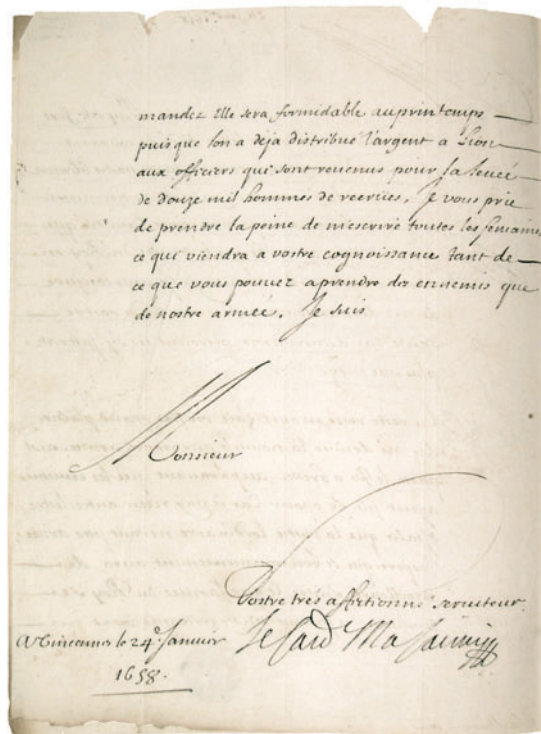 mandez Elle sera formidable au printemps
puis que lon a deja distribué l'argent a Lion
aux officiers qui sont revenus pour la leueé
de douze mil hommes de recrües. Je vous prie
de prendre la peine de m'escrire toutes les semaines
ce qui viendra a vostre cognoissance tant de
ce que vous pouvez aprendre des ennemis que
de nostre armeé. Je suis
Monsieur
Vostre tres affectionne seruiteur
Le Card Mazarini
A Vincennes le 24e Januier
1658.